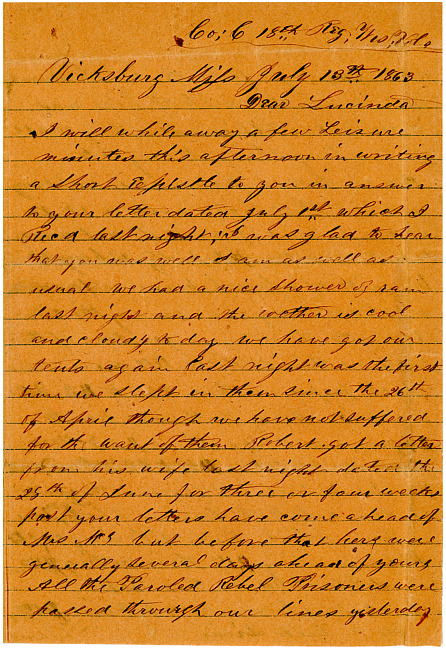 Co; C 18th Reg, Wis, Vol,
Vicksburg Miss July 13th 1863
Dear Lucinda
I will while away a few Leisure
minutes this afternoon in writing
a Short Epistle to you in answer
to your letter dated July 1st which I
Recd last night, it was glad to hear
that you was well I am as well as
usual we had a nice Shower of rain
last night and the wether is cool
and cloudy to day we have got our
tents again last night was the first
time we slept in them since the 26th
of April though we have not suffered
for the want of them Robert got a letter
from his wife last night dated the
29th of June for three or four weeks
past your letters have come ahead of
Mrs Mc's but before that hers were
generally several days ahead of yours
All the Paroled Rebel Prisoners were
passed through our lines yesterday